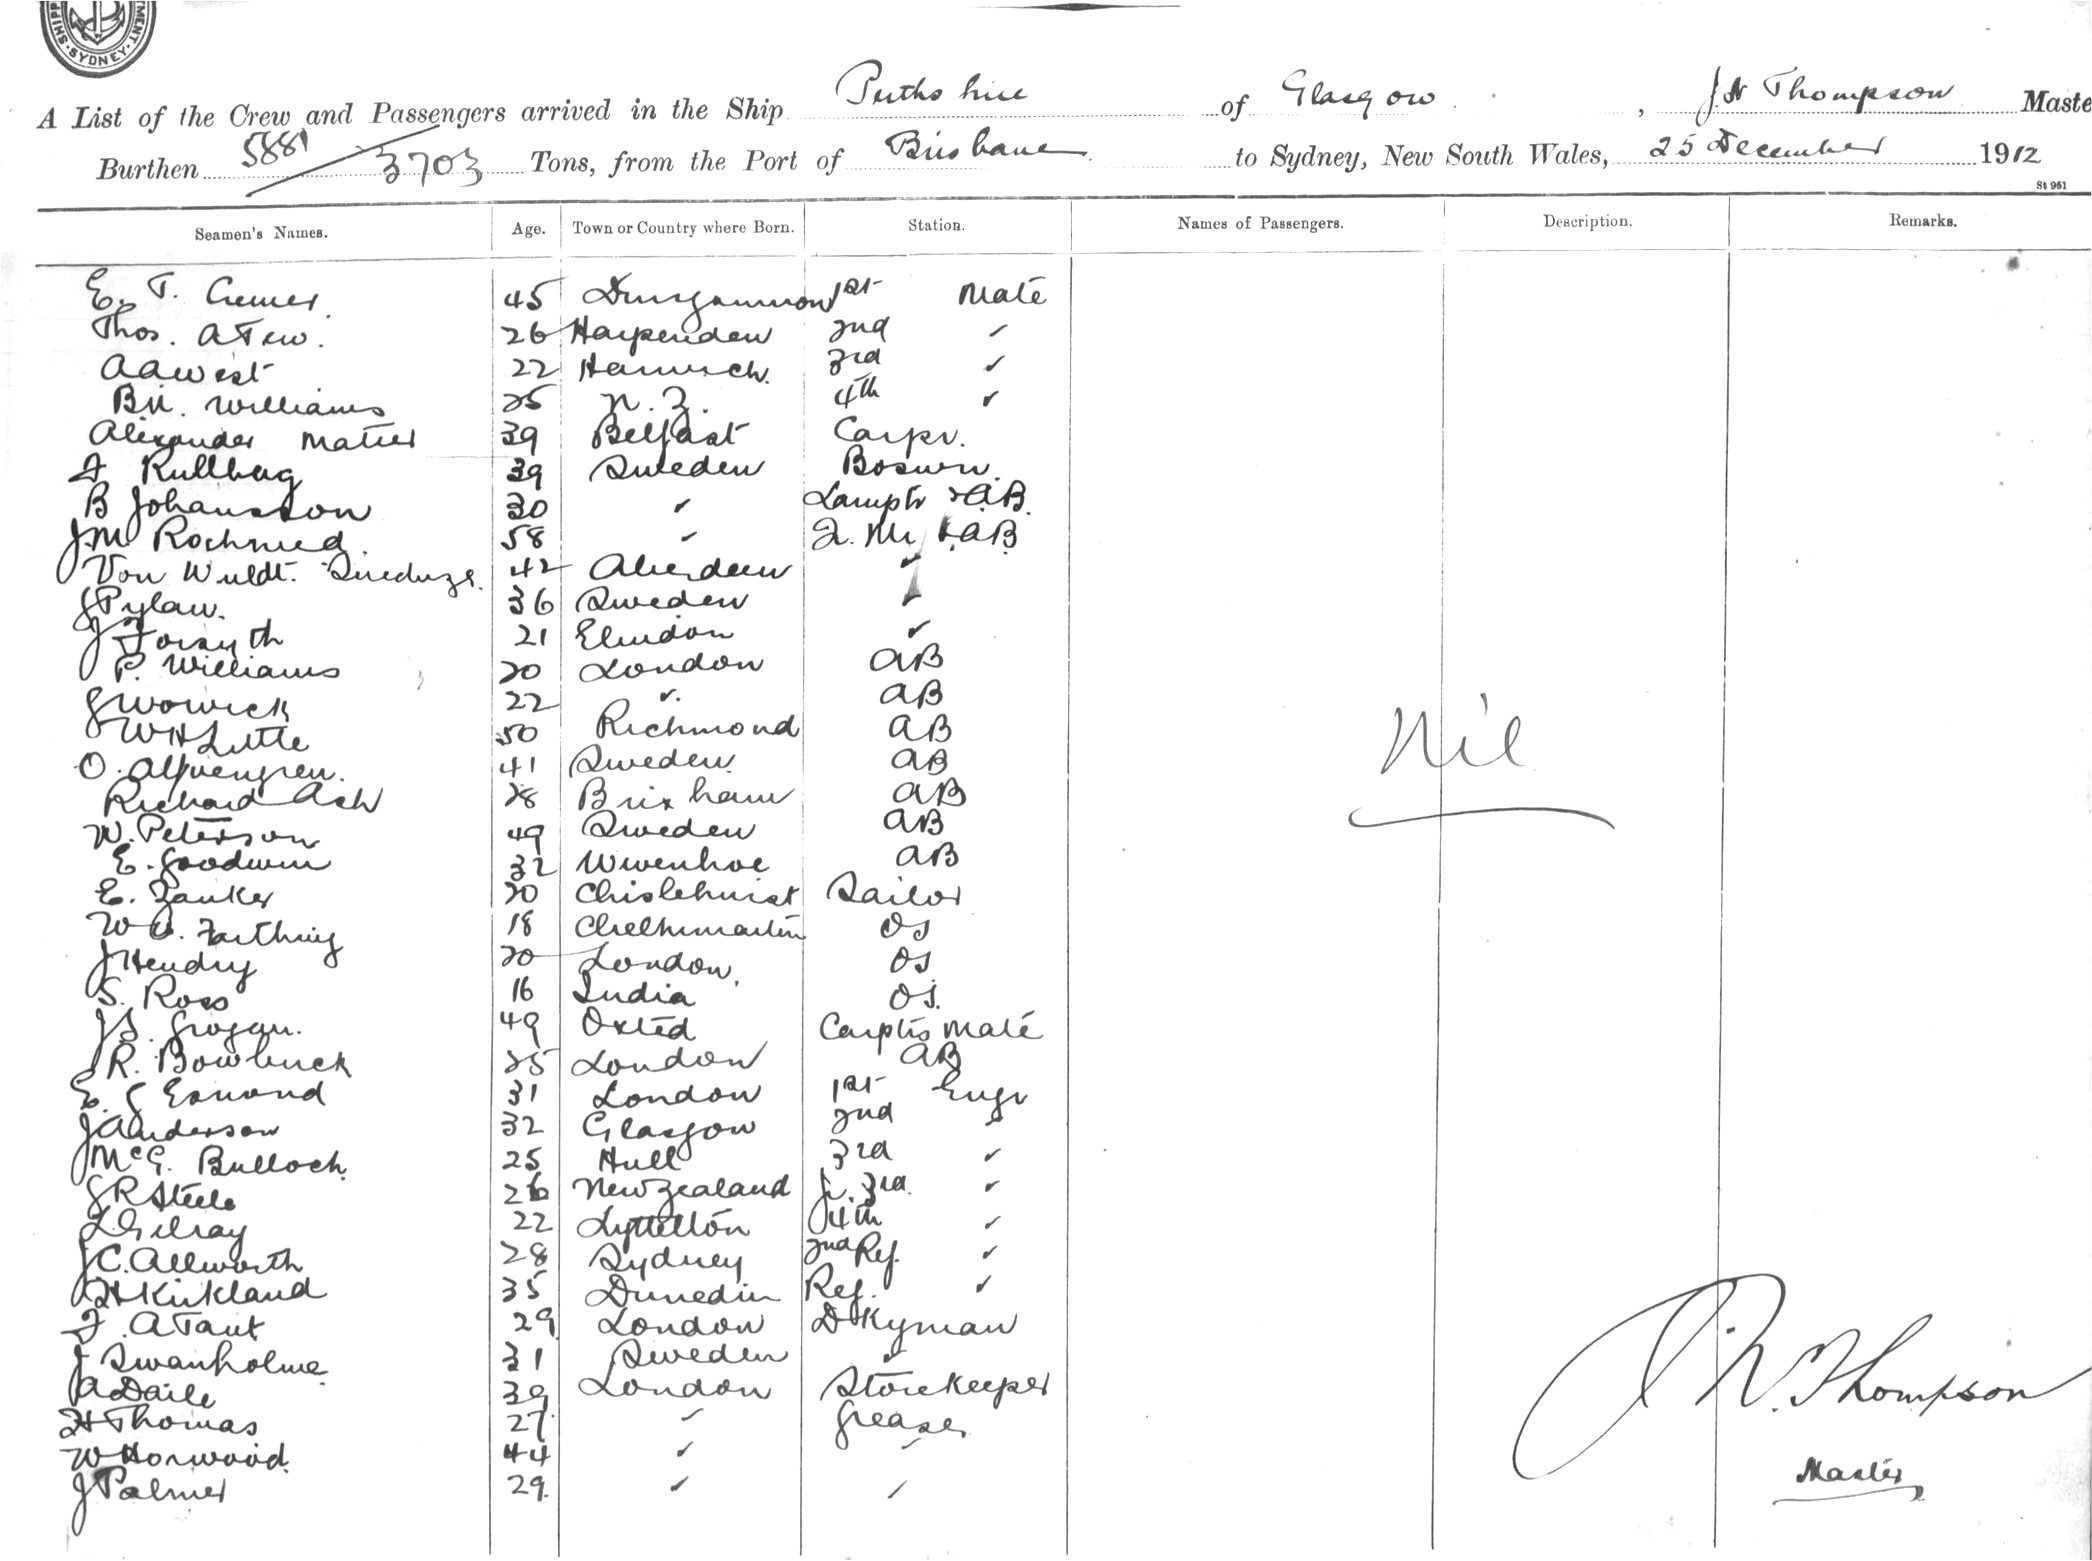 SHIPP MENT SYDNEY
A List of the Crew and Passengers arrived in the Ship Perthshire of Glasgow, J. H Thompson Maste
Burthen 5881/3703 Tons, from the Port of Brisbane to Sydney, New South Wales, 25 December 1912
St 951
Seamen's Names. Age. Town or Country where Born. Station. Names of Passengers. Description. Remarks.
E. T. Cremer 45 Dungannon 1st Mate
Thos. A Tew. 26 Harpenden 2nd "
A A West 22 Harwich. 3rd "
B.H. Williams 25 N. Z. 4th "
Alexander Matier 39 Belfast Carpr.
F Kullberg 39 Sweden Boswn.
B Johansson 30 " Lamptr & A.B.
J M 58 " Q. Mr & AB
Von 42 Aberdeen "
J Pylaw. 36 Sweden "
J Forsyth 21 "
P. Williams 20 London AB
G Worwick 22 " AB
W H Little 50 Richmond AB
O. Alfvengren. 41 Sweden. AB
Richard Ash 28 Brixham AB
W. Peterson 49 Sweden AB
E. Goodwin 32 Wivenhoe AB
E. 20 Chislehurst Sailor
W. Farthing 18 OS
J Hendry 20 London. OS
S. Ross 16 India OS.
J S. Grogan. 49 Oxted Carptrs Mate
R. 25 London AB
E. G Esmond 31 London 1st Engr
J Anderson 32 Glasgow 2nd "
J McG. Bulloch. 25 Hull 3rd "
J R Steele 26 New Zealand Jr. 3rd. "
L Gilray 22 Lyttelton 4th "
J C. Allworth 28 Sydney 2nd Ref. "
H Kirkland 35 Dunedin Ref. "
F. A Tant 29 London DKyman
J Swanholme 31 Sweden "
A Daile 39 London Storekeeper
H Thomas 27 " Greaser
W Horwood. 44 " "
J Palmer 29. " "
Nil
J. H. Thompson
Master